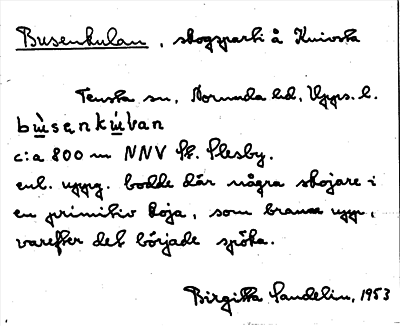 Busenkulan, skogsparti å Knivsta
Tensta sn, Norunda hd, Upps. l.
bɯ̀sęnkɯ́lan
c:a 800 m NNV Pk. Plesby.
enl. uppg. bodde där några skojare i
en primitiv koja, som brann upp,
varefter det började spöka.
Birgitta Sandelin, 1953